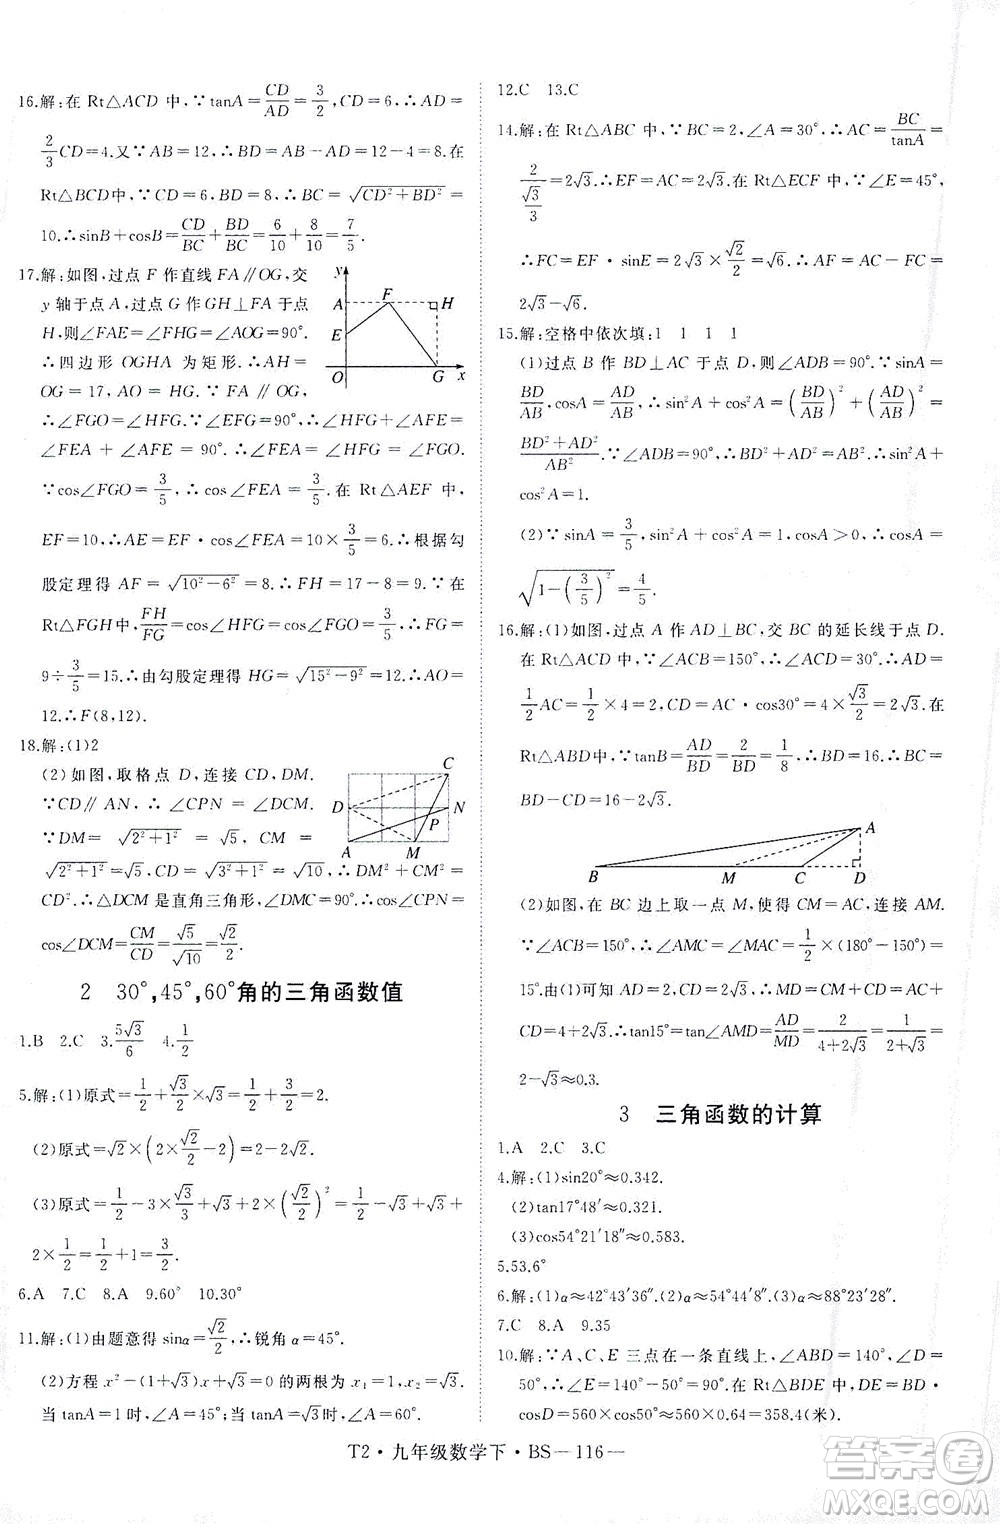 16.解:在 Rt△ACD 中,∵tanA=CD/AD=3/2,∴AD=
2/3CD=4.又∵AB=12,∴BD=12-4=8.在
Rt△BCD中,∵CD=6,BD=8,∴BC=√(CD²+BD²)=
10.∴sinB+cosB=CD/BC+BD/BC=6/10+8/10=7/5.
17.解:如图,过点 F 作直线 FA∥OG,交
y 轴于点 A,过点 G 作 GH⊥FA 于点
H,则∠FAE=∠FHG=∠OGH=90°.
∴四边形 OGHA 为矩形.∴AH=
OG=17,AO=HG.∵FA∥OG,
∴∠FGO=∠HFG.∵∠EFG=90°,∴∠HFG+∠AFE=
∠FEA+∠AFE=90°.∴∠FEA=∠HFG=∠FGO.
∵cos∠FGO=3/5,∴cos∠FEA=3/5.在 Rt△AEF 中,
EF=10,∴AE=EF·cos∠FEA=10×3/5=6.∴根据勾
股定理得 AF=√(10²-6²)=8.∴FH=17-8=9.在
Rt△FGH中,∵FH/FG=cos∠HFG=cos∠FGO=3/5,∴FG=
9÷3/5=15.∴由勾股定理得 HG=√(15²-9²)=12.∴AO=
12.∴F(8,12).
y
A
F
H
E
O
G
x
18.解:(1)2
(2)如图,取格点 D,连接 CD,DM.
∵CD∥AN,∴∠CPN=∠DCM.
∵DM=√(2²+1²)=√5,CM=
√(2²+1²)=√5,CD=√(3²+1²)=√10,∴DM²+CM²=
CD².∴△DCM 是直角三角形,∠DMC=90°.∴cos∠CPN=
cos∠DCM=CM/CD=√5/√10=√2/2.
C
D
N
P
A
M
2 30°,45°,60°角的三角函数值
1.B 2.C 3.5√3/6 4.1/2
5.解:(1)原式=1/2+√3/2×√3=1/2+3/2=2.
(2)原式=√2×(2×√2/2-2)=√2×(√2-2)=2-2√2.
(3)原式=1/2-3×√3/3+√3+2×(√2/2)²=1/2-√3+√3+
2×1/2=1/2+1=3/2.
6.A 7.C 8.A 9.60° 10.30°
11.解:(1)由题意得 sinα=√2/2,∴锐角 α=45°.
(2)方程 x²-(1+√3)x+√3=0的两根为x₁=1,x₂=√3.
当tanA=1时,∠A=45°;当tanA=√3时,∠A=60°.
12.C 13.C
14.解:在 Rt△ABC 中,∵BC=2,∠A=30°,∴AC=BC/tanA=
2/(√3/3)=2√3.∴EF=AC=2√3.在 Rt△ECF 中,∵∠E=45°,
∴FC=EF·sinE=2√3×√2/2=√6.∴AF=AC-FC=
2√3-√6.
15.解:空格中依次填:1 1 1 1
(1)过点 B 作 BD⊥AC 于点 D,则∠ADB=90°.∴sinA=
BD/AB,cosA=AD/AB,∴sin²A+cos²A=(BD/AB)²+(AD/AB)²=
(BD²+AD²)/AB².∵∠ADB=90°,∴BD²+AD²=AB².∴sin²A+
cos²A=1.
(2)∵sinA=3/5,sin²A+cos²A=1,cosA>0,∴cosA=
√(1-(3/5)²)=4/5.
16.解:(1)如图,过点 A 作 AD⊥BC,交 BC 的延长线于点 D.
在 Rt△ADC 中,∵∠ACB=150°,∴∠ACD=30°.∴AD=
1/2AC=1/2×4=2,CD=AC·cos30°=4×√3/2=2√3.在
Rt△ABD中,∵tanB=AD/BD=2/BD=1/8,∴BD=16.∴BC=
BD-CD=16-2√3.
A
B
M
C
D
(2)如图,在 BC 边上取一点 M,使得 CM=AC,连接 AM.
∵∠ACB=150°,∴∠AMC=∠MAC=1/2×(180°-150°)=
15°.由(1)可知 AD=2,CD=2√3,∴MD=CM+CD=AC+
CD=4+2√3.∴tan15°=tan∠AMD=AD/MD=2/(4+2√3)=1/(2+√3)=
2-√3≈0.3.
3 三角函数的计算
1.A 2.C 3.C
4.解:(1)sin20°≈0.342.
(2)tan17°48′≈0.321.
(3)cos54°21′18″≈0.583.
5.53.6°
6.解:(1)α≈42°43′43″.(2)α≈1°7′16″.(3)α≈88°23′16″.
7.C 8.A 9.35
10.解:∵A、C、E 三点在一条直线上,∠ABD=140°,∠D=
50°,∴∠E=140°-50°=90°.在 Rt△BDE 中,DE=BD·
cosD=560×cos50°≈560×0.64=358.4(米).
T2·九年级数学下·BS—116—
答案圈
MXQE.COM